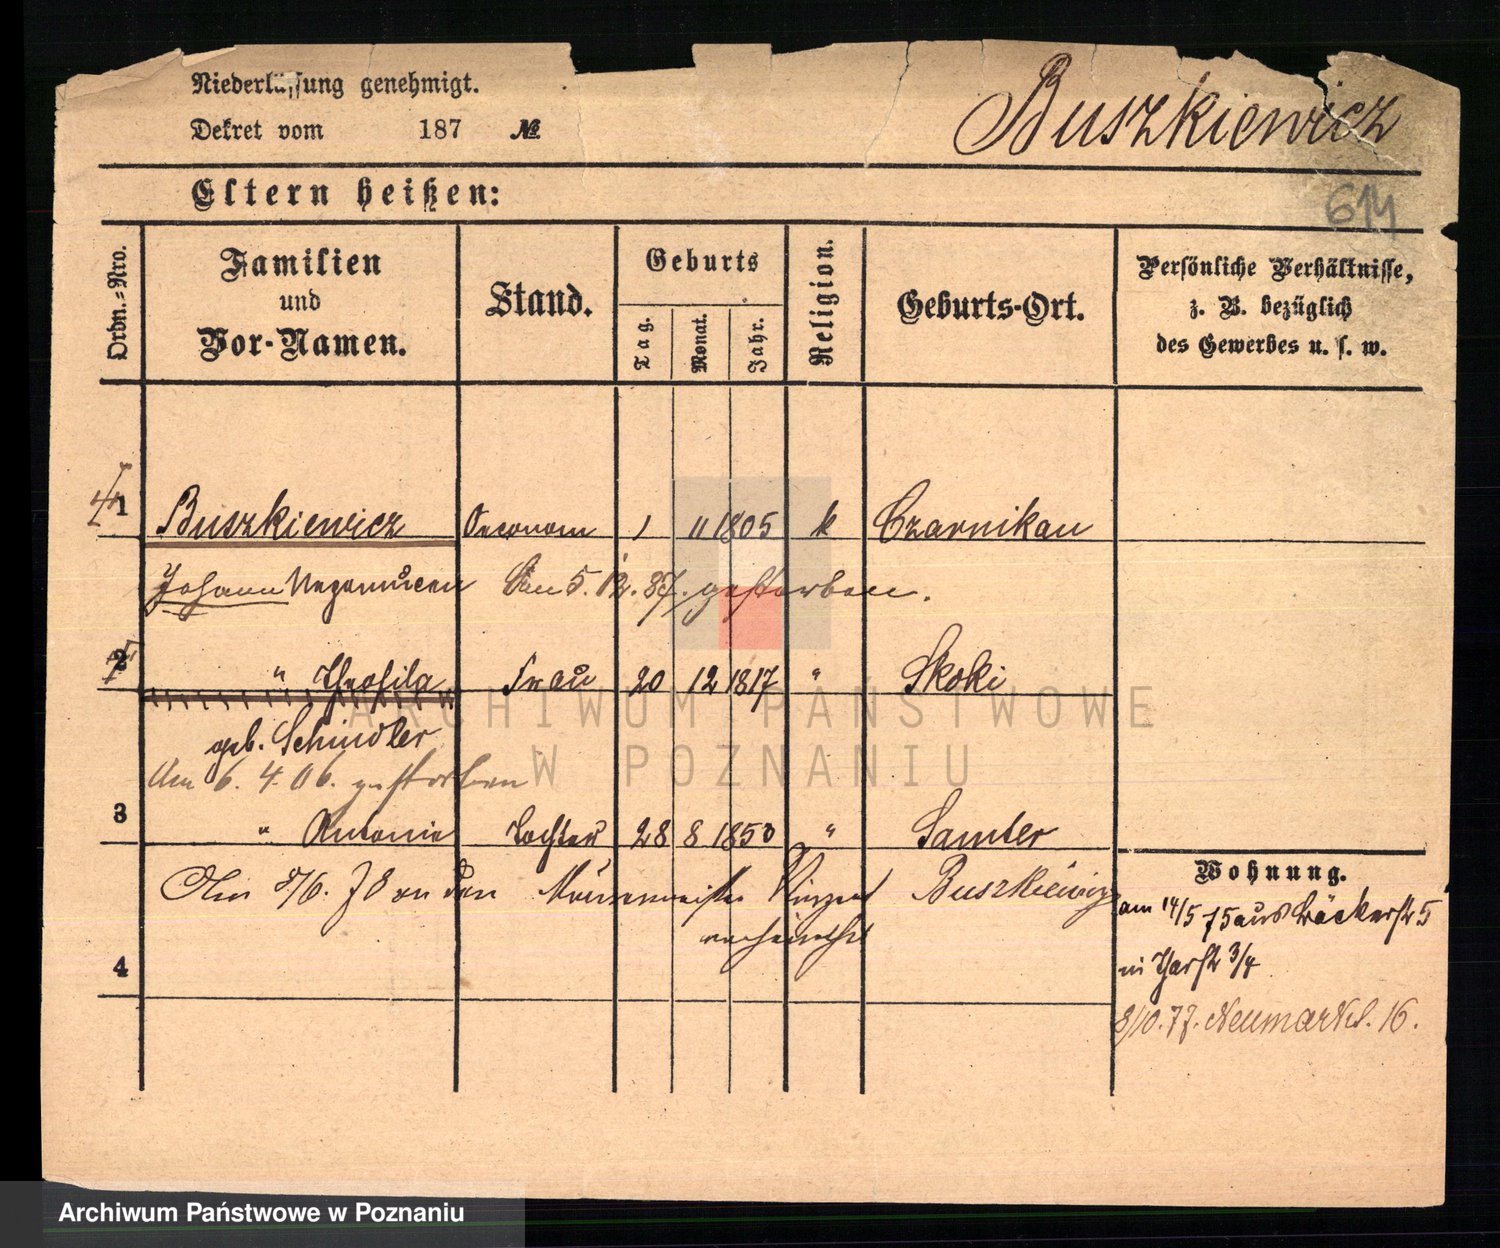 Niederlassung genehmigt.
Dekret vom 187 №
Buszkiewicz
614
Eltern heißen:
Ordn.-Nro.
Familien
und
Vor-Namen.
Stand.
Geburts
Tag.
Monat.
Jahr.
Religion.
Geburts-Ort.
Persönliche Verhältnisse,
z. B. bezüglich
des Gewerbes u. s. w.
1 Buszkiewicz Oeconom 1 11 1805 k Czarnikau
Johann Nepomucen Am 5. 12. 87. gestorben.
2 " Theofila Frau 20 12 1817 " Skoki
geb. Schindler
Am 6. 4. 06. gestorben
3 " Antonie Tochter 28 8 1850 " Samter
8/6. 78 an den Maurermeister Vinzent Buszkiewicz
verheirathet
4
Wohnung.
am 14/5 75 aus Bäckerstr 5
in Thorstr 3/4
8/10. 77. Neumarkt. 16.
ARCHIWUM PAŃSTWOWE
W POZNANIU
Archiwum Państwowe w Poznaniu